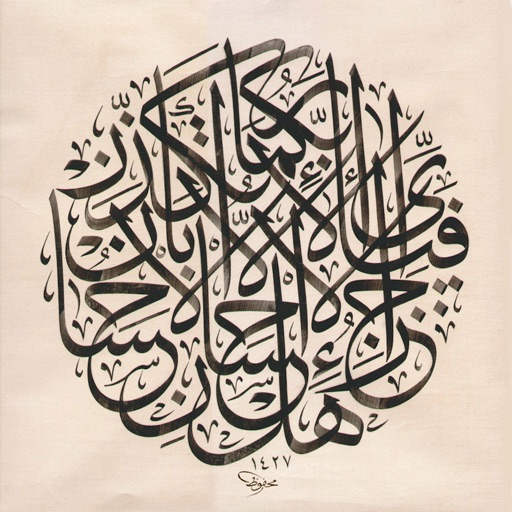 هل جزاء الإحسان إلا الإحسان فبأي آلاء ربكما تكذبان
١٤٢٧
محفوظ